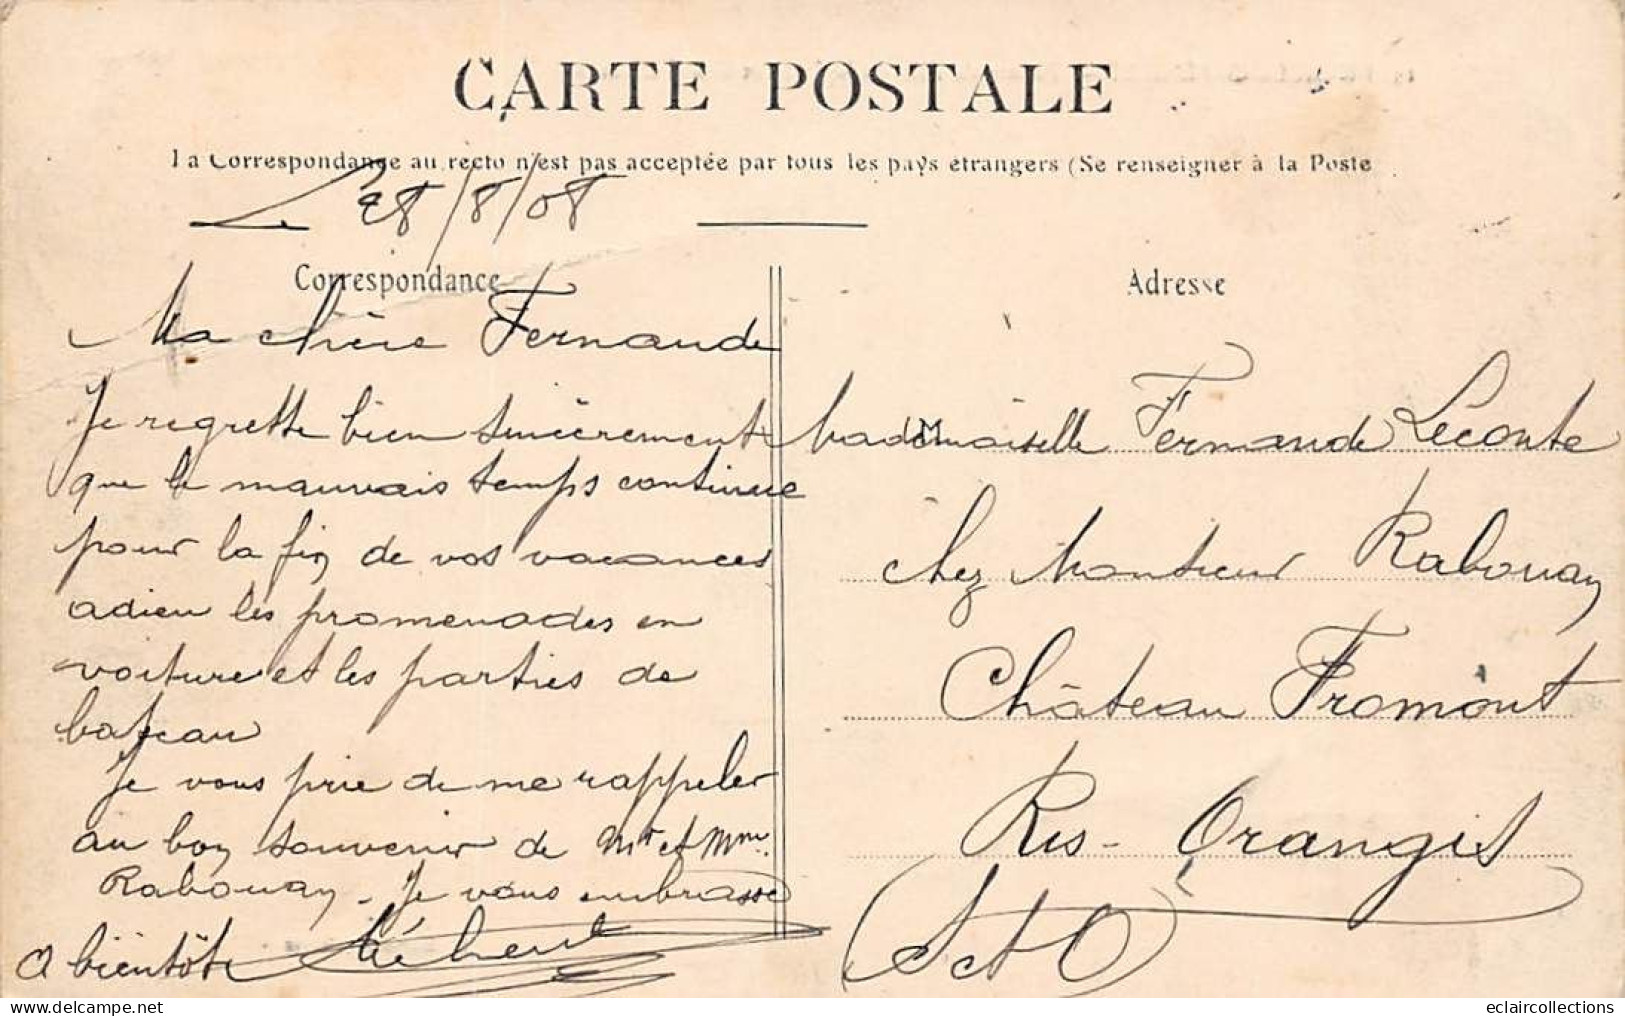 CARTE POSTALE
La Correspondance au recto n'est pas acceptée par tous les pays étrangers (Se renseigner à la Poste
Le 28/8/08
Correspondance
Ma chère Fernande
Je regrette bien sincèrement
que le mauvais temps continue
pour la fin de vos vacances
adieu les promenades en
voiture et les parties de
bateau
Je vous prie de me rappeler
au bon souvenir de Mr et Mme
Rabouan. Je vous embrasse
a bientôt
Adresse
Mademoiselle Fernande Leconte
chez Monsieur Rabouan
Château Fromont
Ris-Orangis
(S et O)
eclaircollections